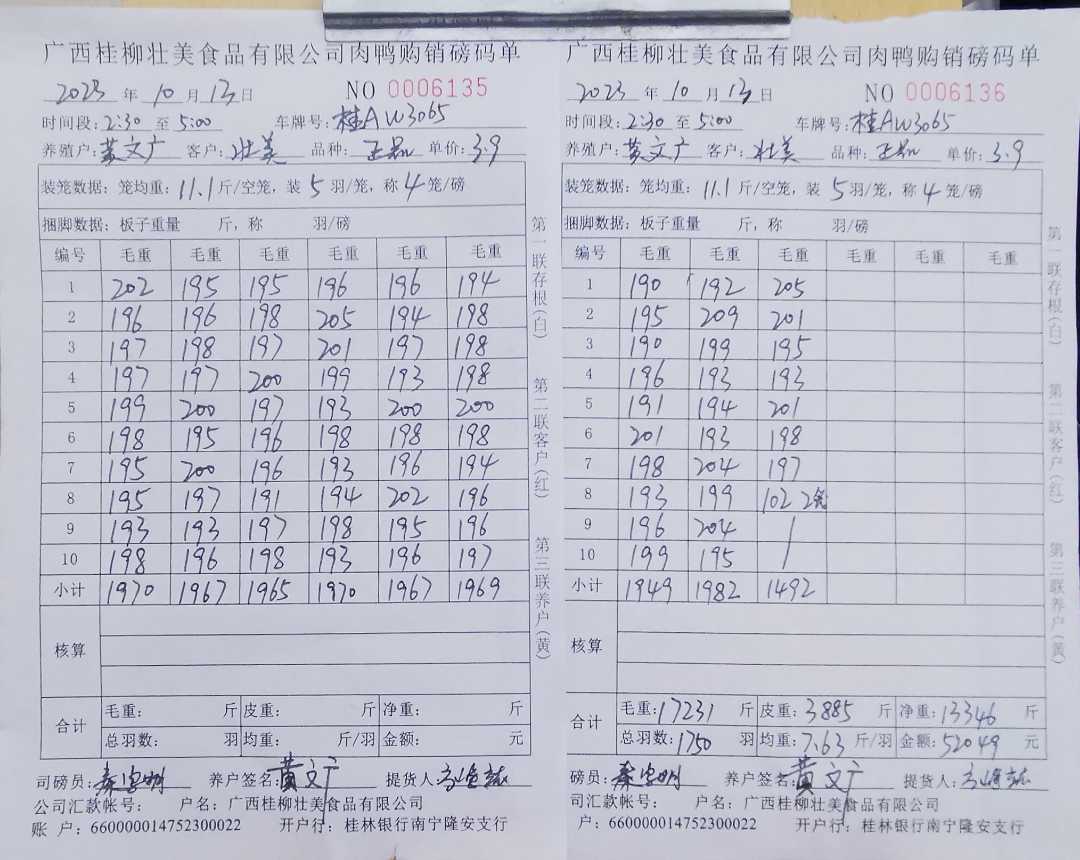 广西桂柳壮美食品有限公司肉鸭购销磅码单
2023 年 10 月 13 日 NO 0006135
时间段: 2:30 至 5:00 车牌号: 桂AW3065
养殖户: 黄文广 客户: 壮美 品种: 单价: 3.9
装笼数据: 笼均重: 11.1 斤/空笼, 装 5 羽/笼, 称 4 笼/磅
捆脚数据: 板子重量 斤, 称 羽/磅
编号 毛重 毛重 毛重 毛重 毛重 毛重
1 202 195 195 196 196 194
2 196 196 198 205 194 198
3 197 198 197 201 197 198
4 197 197 200 199 193 198
5 199 200 197 193 200 200
6 198 195 196 198 198 198
7 195 200 196 193 196 194
8 195 197 191 194 202 196
9 193 193 197 198 195 196
10 198 196 198 193 196 197
小计 1970 1967 1965 1970 1967 1969
核算
合计 毛重: 斤 皮重: 斤 净重: 斤
总羽数: 羽 均重: 斤/羽 金额: 元
司磅员: 养户签名: 黄文广 提货人:
公司汇款帐号: 户名: 广西桂柳壮美食品有限公司
账 户: 660000014752300022 开户行: 桂林银行南宁隆安支行
第一联存根(白) 第二联客户(红) 第三联养户(黄)
广西桂柳壮美食品有限公司肉鸭购销磅码单
2023 年 10 月 13 日 NO 0006136
时间段: 2:30 至 5:00 车牌号: 桂AW3065
养殖户: 黄文广 客户: 壮美 品种: 单价: 3.9
装笼数据: 笼均重: 11.1 斤/空笼, 装 5 羽/笼, 称 4 笼/磅
捆脚数据: 板子重量 斤, 称 羽/磅
编号 毛重 毛重 毛重 毛重 毛重 毛重
1 190 192 205
2 195 209 201
3 190 199 195
4 196 193 193
5 191 194 201
6 201 193 198
7 198 204 197
8 193 199 102 2笼
9 196 204 /
10 199 195 /
小计 1949 1982 1492
核算
合计 毛重: 17231 斤 皮重: 3885 斤 净重: 13346 斤
总羽数: 1750 羽 均重: 7.63 斤/羽 金额: 52049 元
磅员: 养户签名: 黄文广 提货人:
司汇款帐号: 户名: 广西桂柳壮美食品有限公司
户: 660000014752300022 开户行: 桂林银行南宁隆安支行
第一联存根(白) 第二联客户(红) 第三联养户(黄)